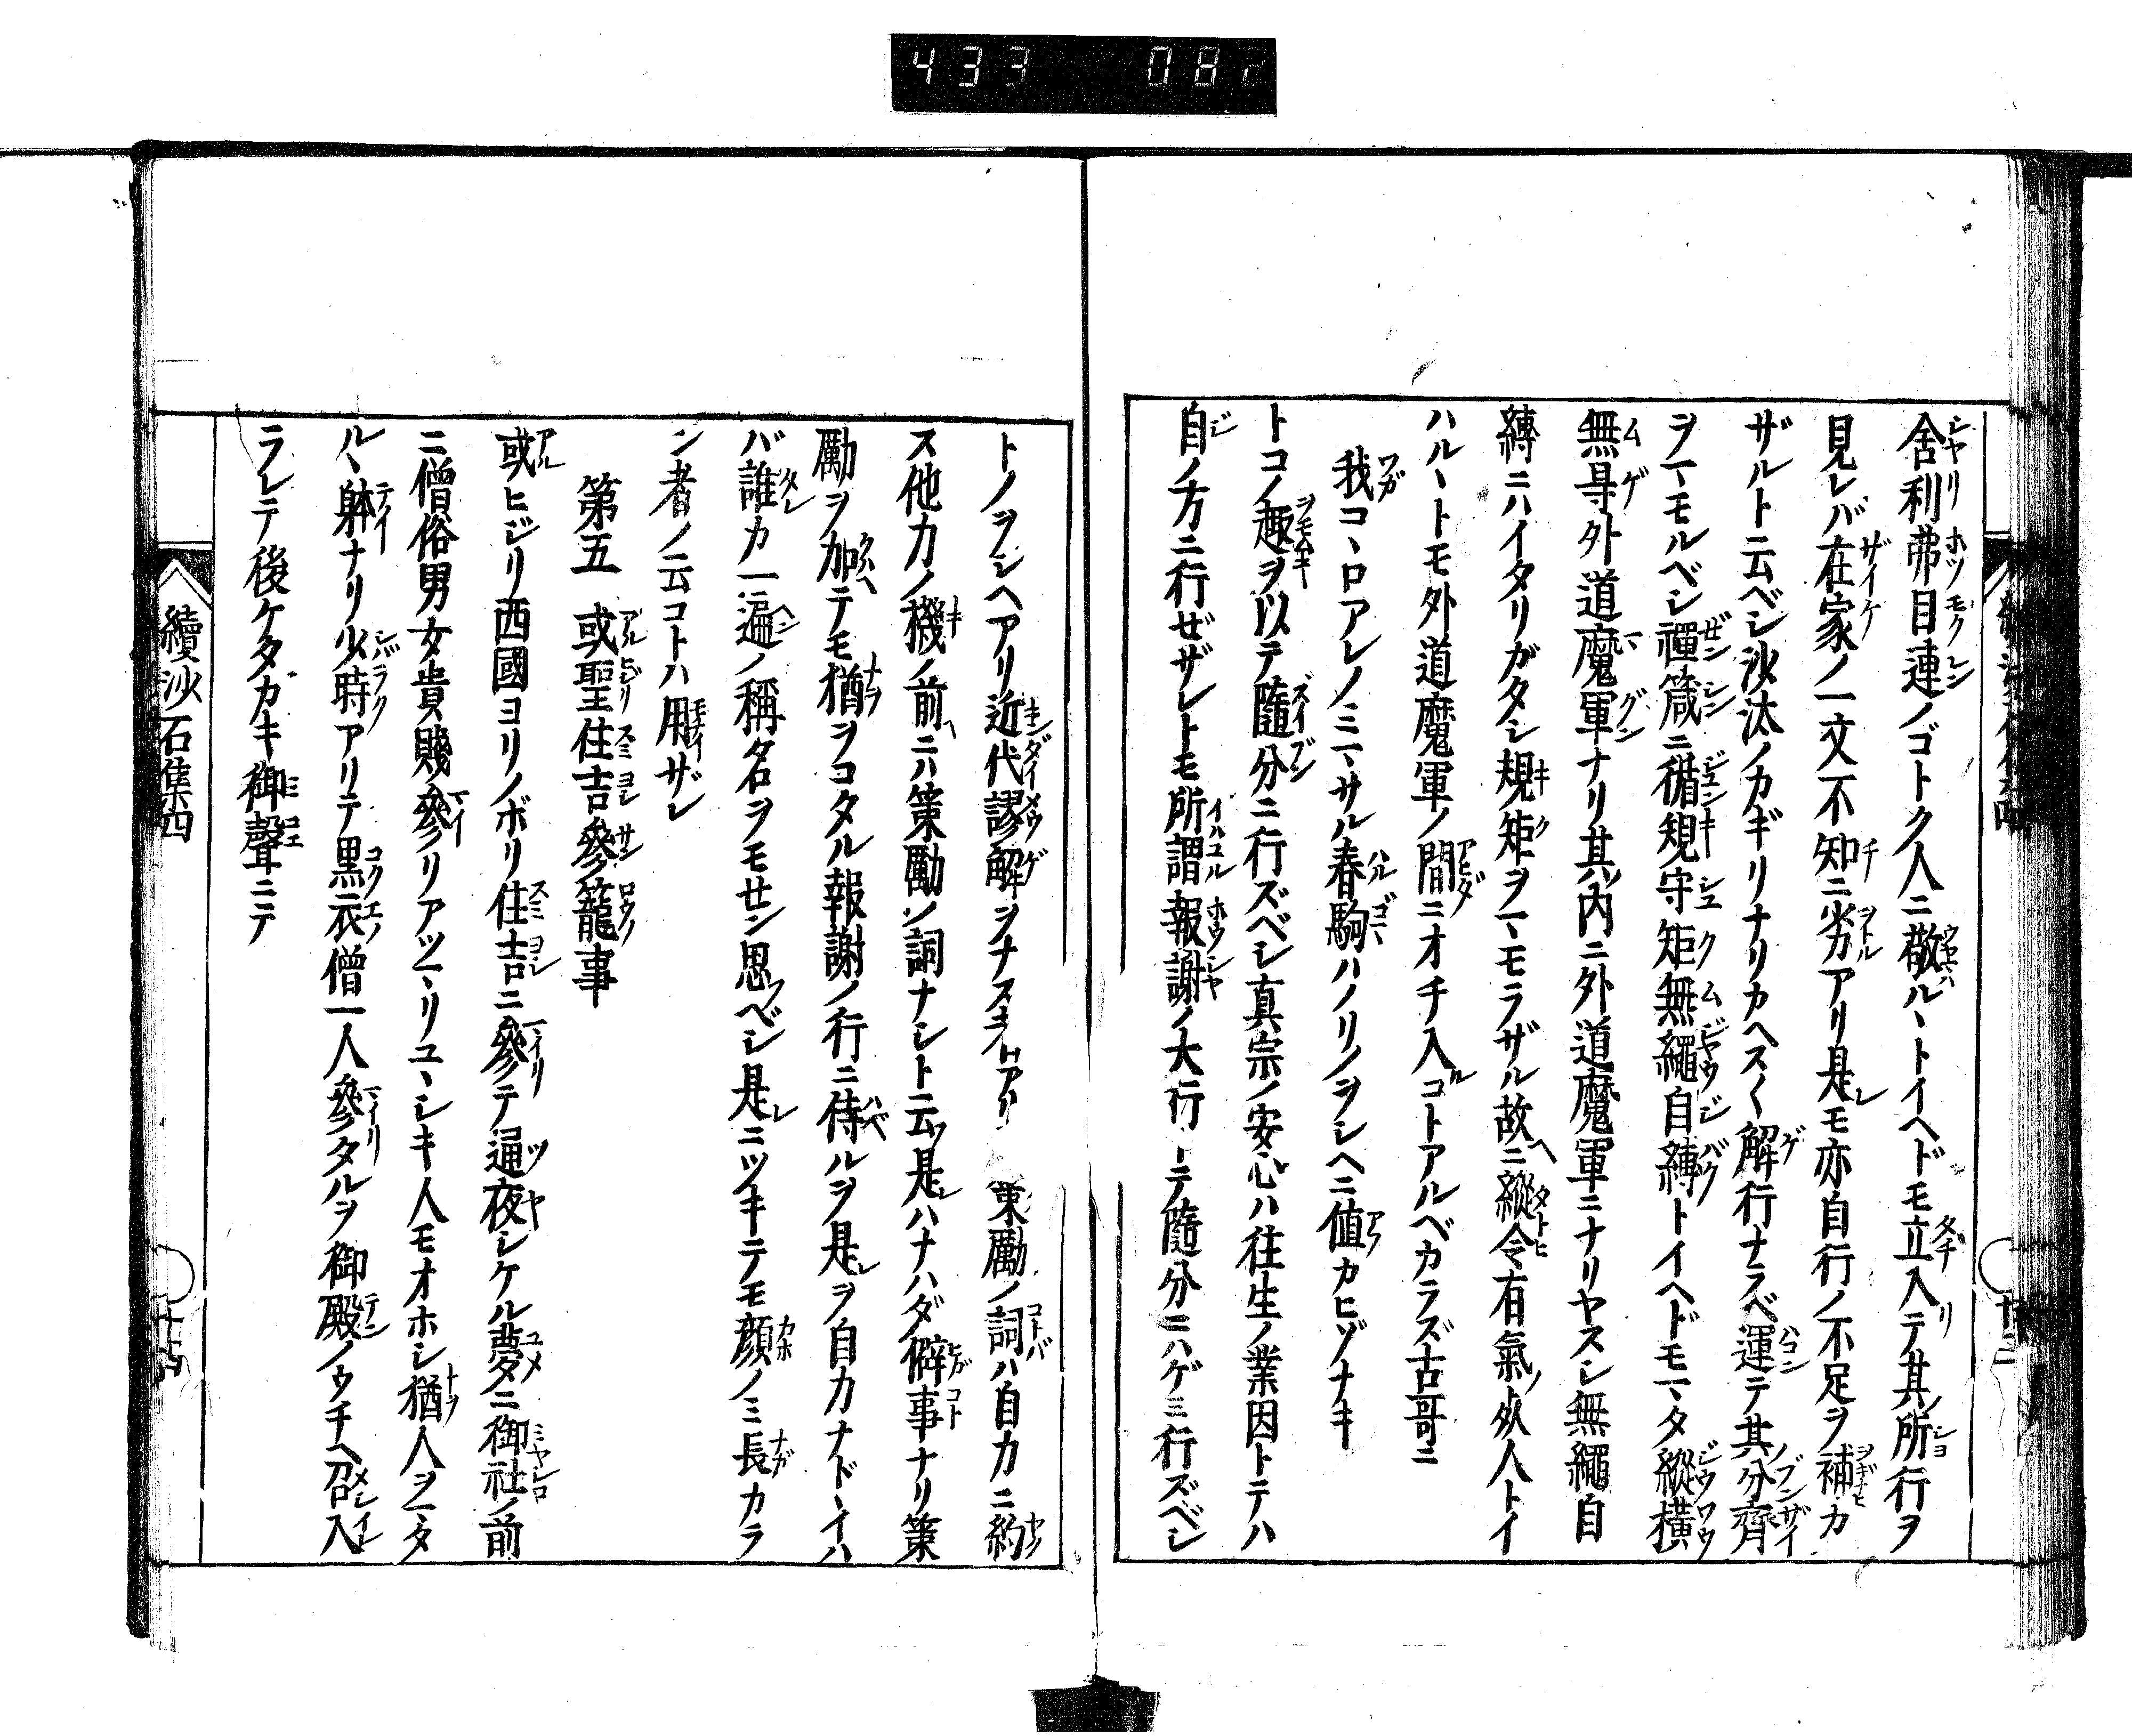 433 082
舎利弗目連ノゴトク人ニ敬ルヽトイヘドモ立入テ其所行ヲ
見レバ在家ノ一文不知ニ劣カアリ是モ亦自行ノ不足ヲ補カ
ザルト云ベシ沙汰ノカギリナリカヘス〱解行ナラベ運テ其分齊
ヲマモルベシ禪箴ニ循規守矩無繩自縛トイヘドモマタ縱横
無㝵外道魔軍ナリ其内ニ外道魔軍ニナリヤスシ無繩自
縛ニハイタリガタシ規矩ヲマモラザル故ニ縱令有氣死人トイ
ハルヽトモ外道魔軍ノ間ニオチ入コトアルベカラズ古哥ニ
我コヽロアレノミマサル春駒ハノリノヲシヘニ値カヒゾナキ
トコノ趣ヲ以テ隨分ニ行ズベシ真宗ノ安心ハ往生ノ業因トテハ
自ノ方ニ行ゼザレトモ所謂報謝ノ大行トテ隨分ニハゲミ行ズベシ
トノヲシヘアリ近代謬解ヲナス アリ 策勵ノ詞ハ自力ニ約
ス他力ノ機ノ前ニハ策勵ノ詞ナシト云是ハナハダ僻事ナリ策
勵ヲ加テモ猶ヲコタル報謝ノ行ニ侍ルヲ是ヲ自力ナドヽイハ
バ誰カ一遍ノ稱名ヲモせン思ベシ是ニツキテモ顔ノミ長カラ
ン者ノ云コトハ用ザレ
第五 或聖住吉參籠事
或ヒジリ西國ヨリノボリ住吉ニ參テ通夜シケル夢ニ御社ノ前
ニ僧俗男女貴賤參リアツマリユヽシキ人モオホシ猶人ヲマタ
ルヽ躰ナリ少時アリテ黒衣僧一人參タルヲ御殿ノウチヘ召入
ラレテ後ケタカキ御聲ニテ
續沙石集四